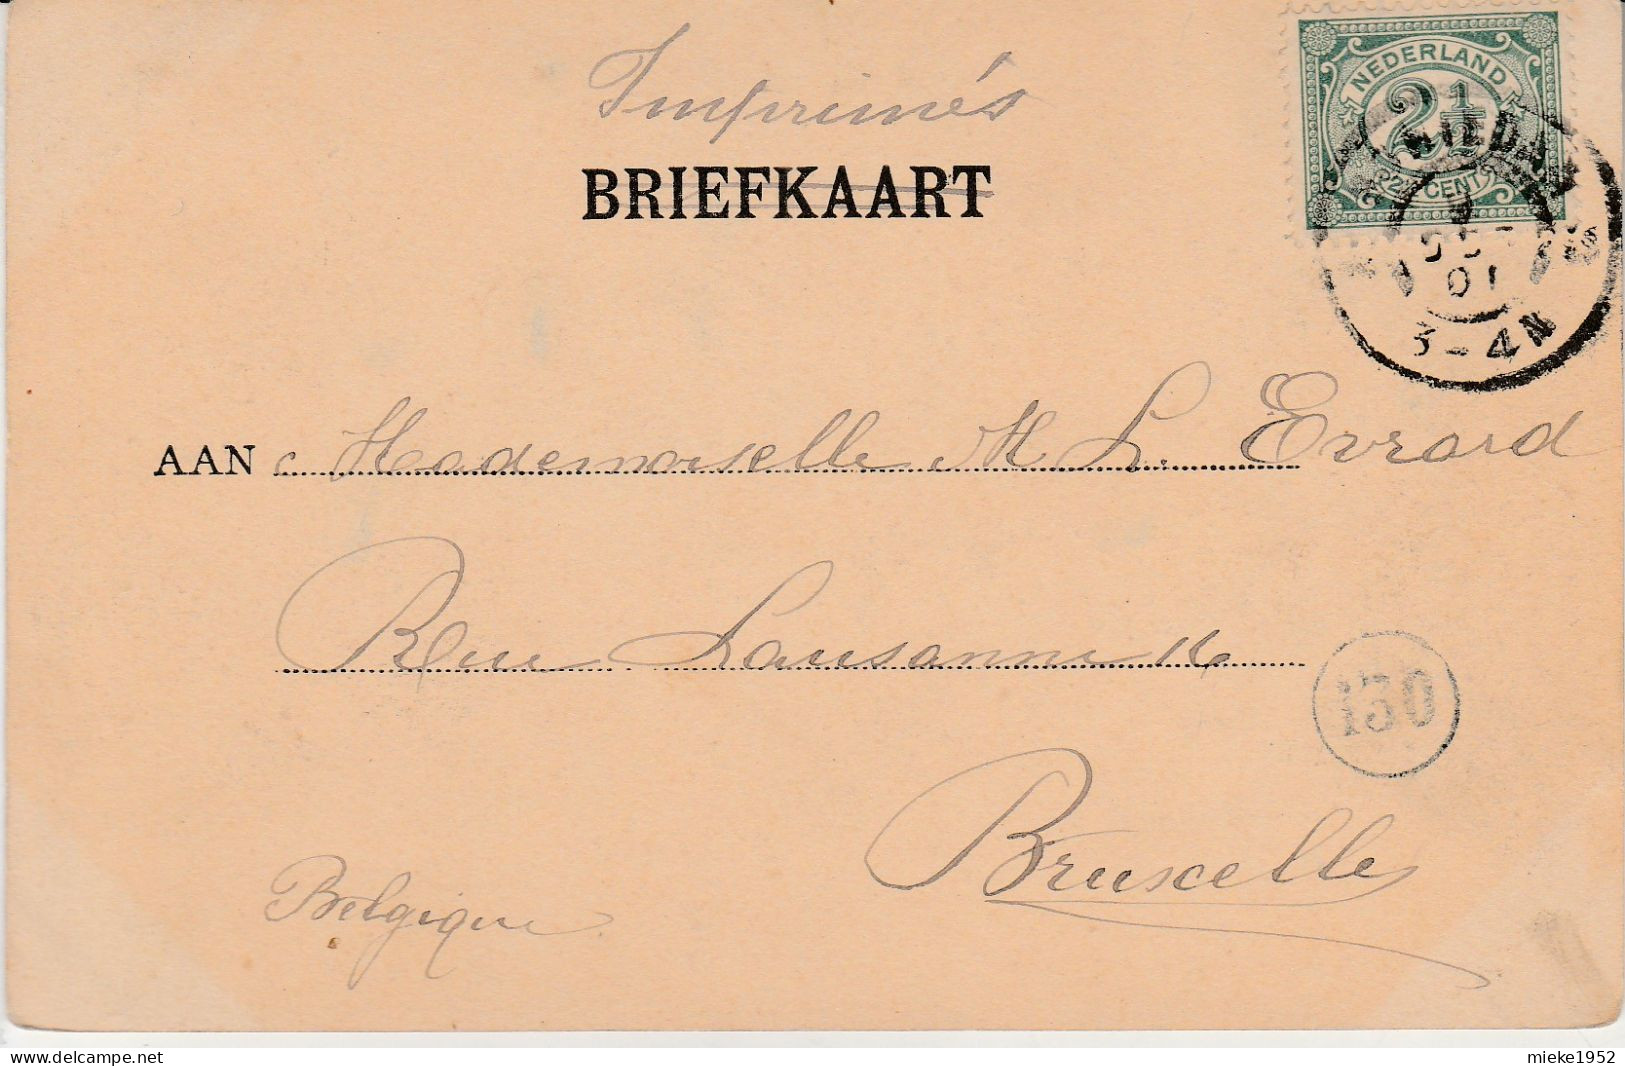 Imprimés
BRIEFKAART
NEDERLAND
2½
2½ CENT
01
3-4N
AAN Mademoiselle M L. Evrard
Rue Lausanne 16
130
Bruxelles
Belgique
mieke1952